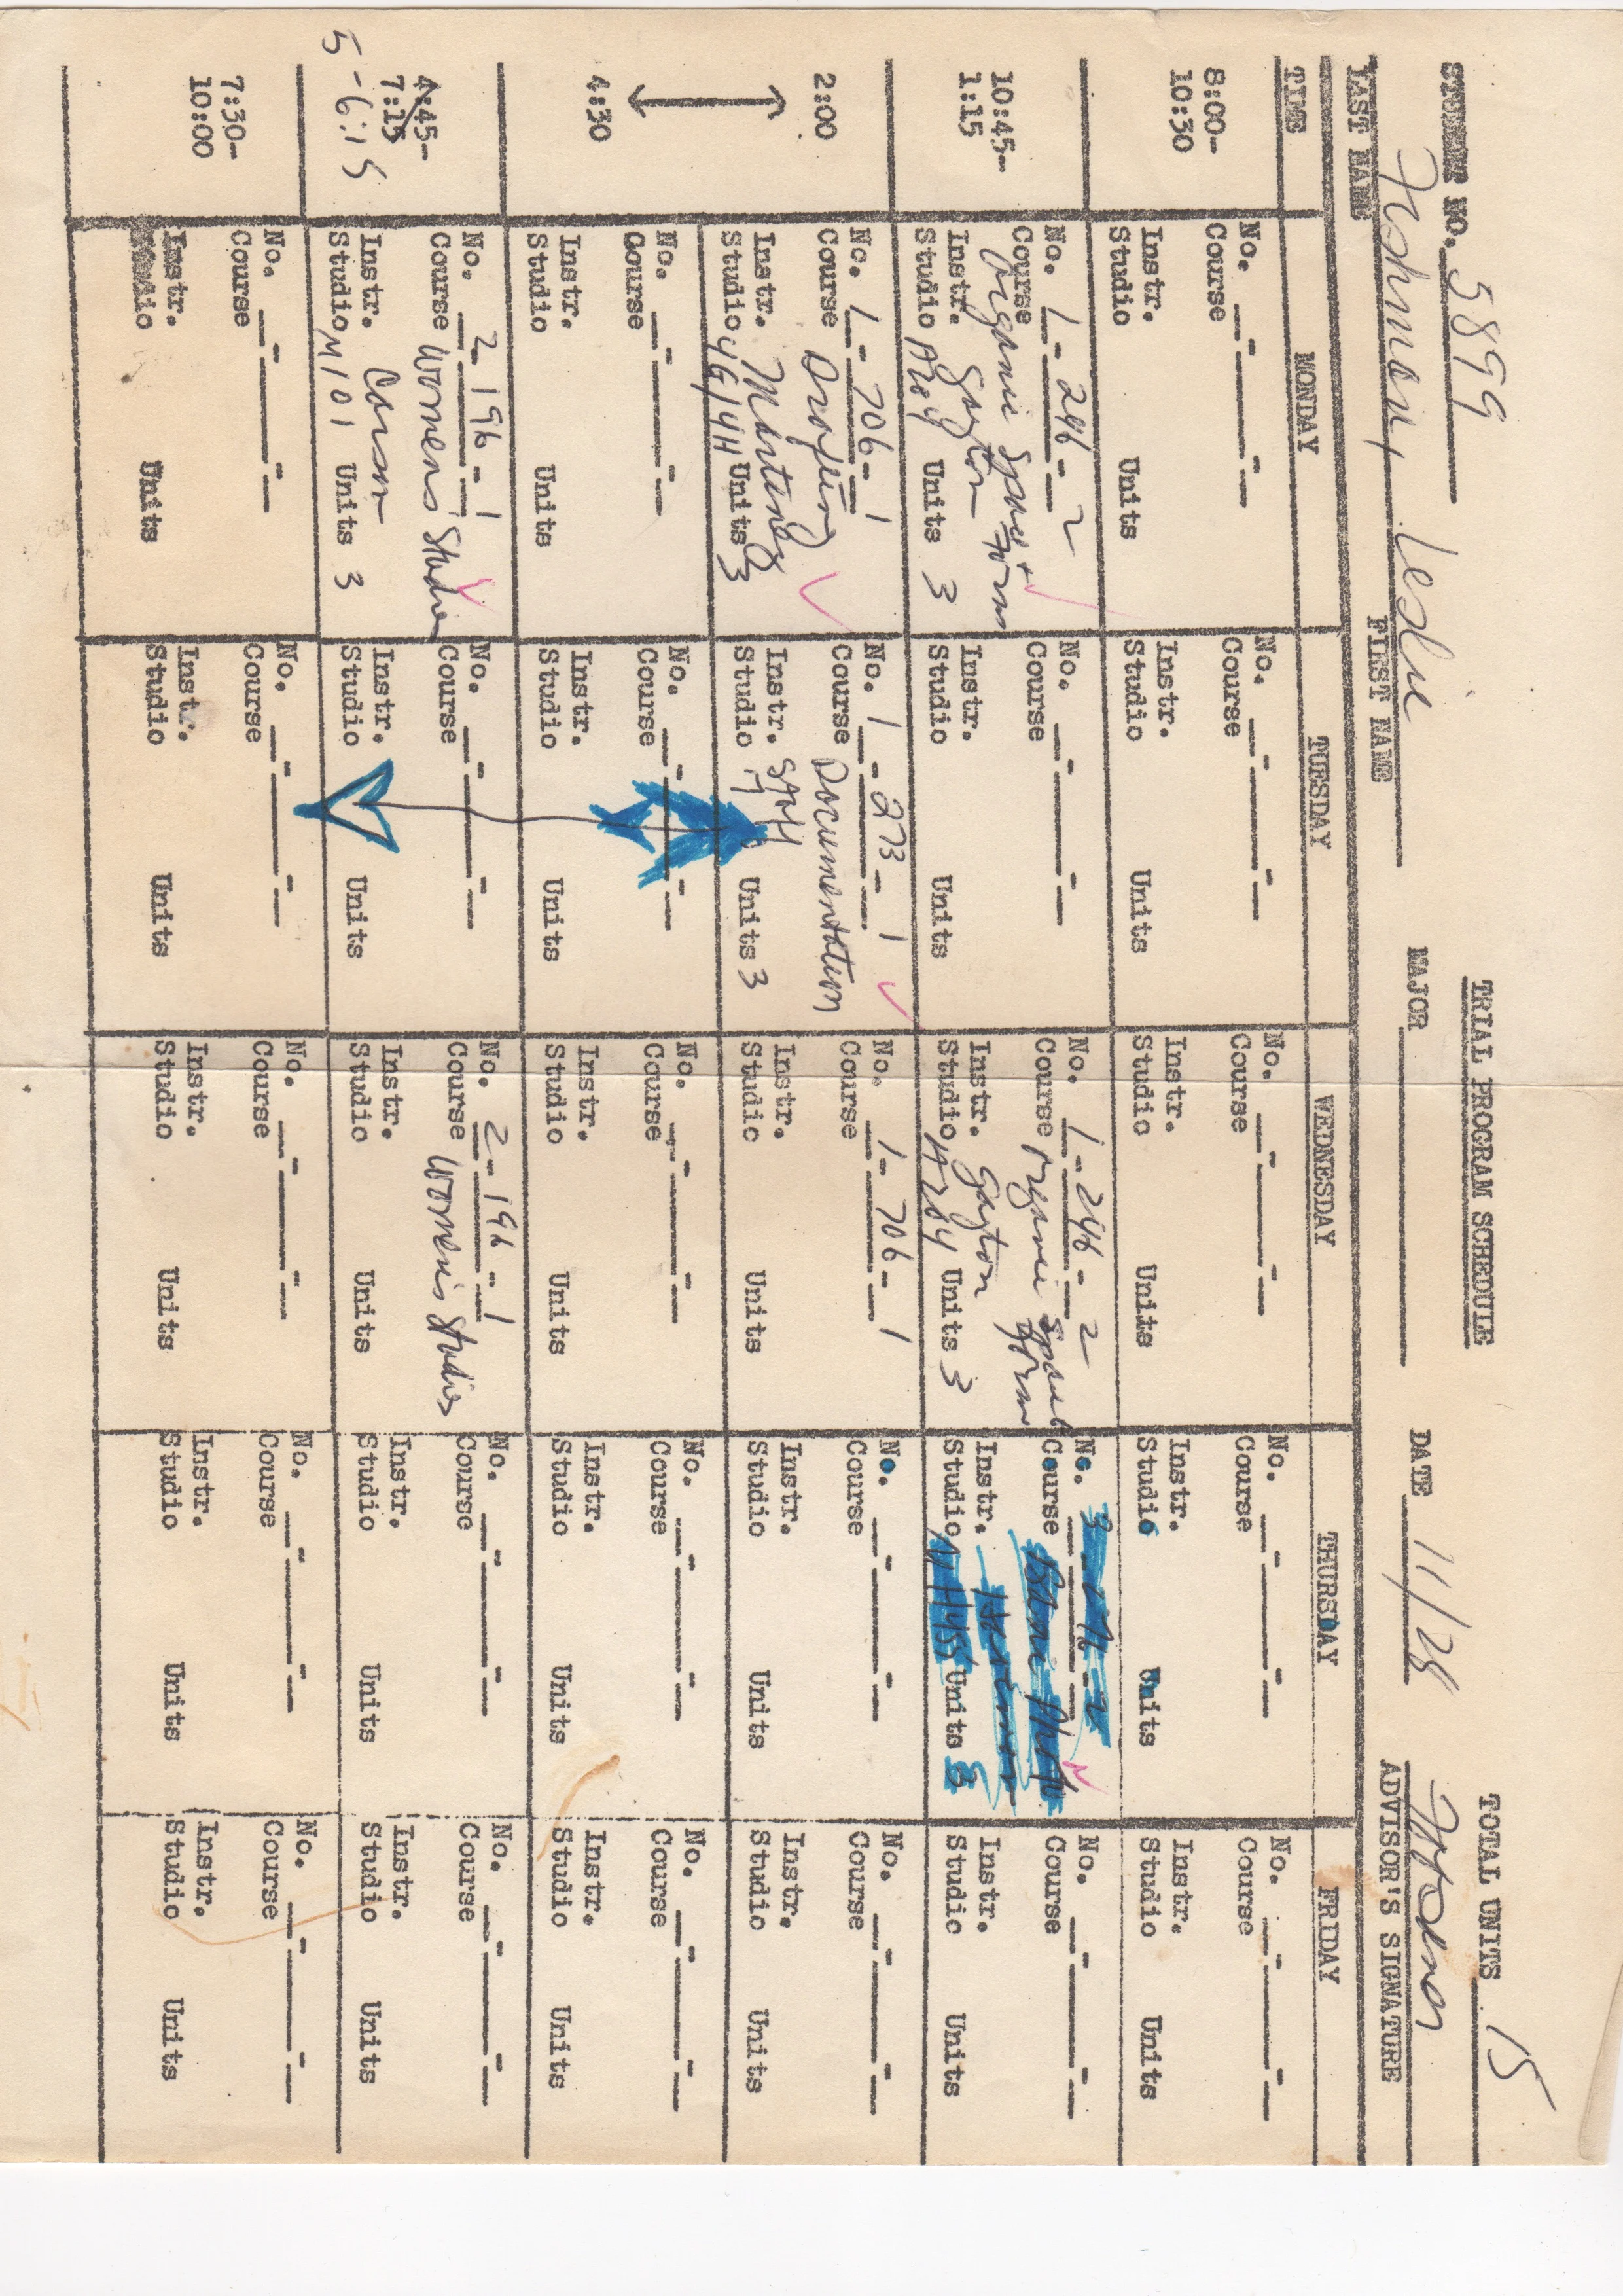 TRIAL PROGRAM SCHEDULE
STUDENT NO. 5899 TOTAL UNITS 15
Fishman, Leslie DATE 11/28
LAST NAME FIRST NAME MAJOR ADVISOR'S SIGNATURE
TIME MONDAY TUESDAY WEDNESDAY THURSDAY FRIDAY
8:00-
10:30
No. No. No. No. No.
Course Course Course Course Course
Instr. Instr. Instr. Instr. Instr.
Studio Units Studio Units Studio Units Studio Units Studio Units
10:45-
1:15
No. 1-246-2 No. No. 1-246-2 No. No.
Course Organic Space + Form Course Course Organic Space Form Course Course
Instr. Gayton Instr. Instr. Gayton Instr. Instr.
Studio A204 Units 3 Studio Units Studio A204 Units 3 Studio Units Studio Units
2:00
No. 1-706-1 No. 1-273-1 No. 1-706-1 No. No.
Course Drafting Course Documentation Course Course Course
Instr. Martinez Instr. Staff Instr. Instr. Instr.
Studio 4G/4H Units 3 Studio Units 3 Studio Units Studio Units Studio Units
4:30
No. No. No. No. No.
Course Course Course Course Course
Instr. Instr. Instr. Instr. Instr.
Studio Units Studio Units Studio Units Studio Units Studio Units
4:45-
7:15
5-6:15
No. 2-196-1 No. No. 2-196-1 No. No.
Course Women's Studies Course Course Women's Studies Course Course
Instr. Instr. Instr. Instr. Instr.
Studio M101 Units 3 Studio Units Studio Units Studio Units Studio Units
7:30-
10:00
No. No. No. No. No.
Course Course Course Course Course
Instr. Instr. Instr. Instr. Instr.
Studio Units Studio Units Studio Units Studio Units Studio Units